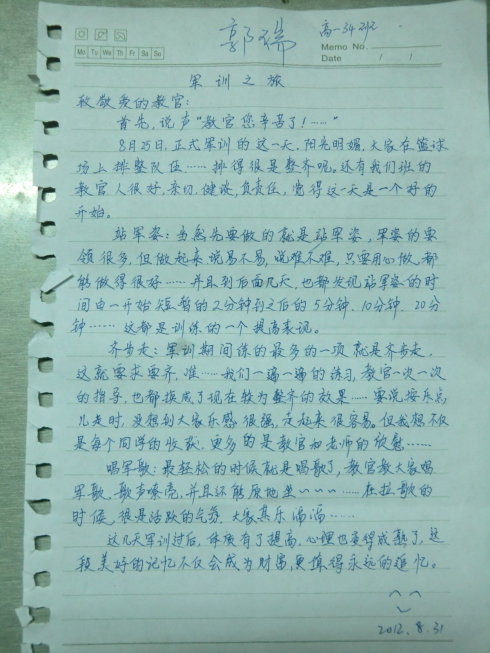 郭瑞
高一34班
Memo No.
Mo Tu We Th Fr Sa Su
Date / /
军训之旅
致敬爱的教官:
首先,说声"教官您辛苦了!……"
8月25日,正式军训的这一天,阳光明媚,大家在篮球
场上排整队伍……排得很是整齐呢。还有我们班的
教官人很好,亲切,健谈,负责任,觉得这一天是一个好的
开始。
站军姿:当然先要做的就是站军姿,军姿的要
领很多,但做起来说易不易,说难不难,只要用心做,都
能做得很好……并且到后面几天,也都发现站军姿的时
间由一开始短暂的2分钟到之后的5分钟、10分钟、20分
钟……这都是训练的一个提高表现。
齐步走:军训期间练的最多的一项就是齐步走,
这就要求要齐,准……我们一遍一遍的练习,教官一次一次
的指导,也都换成了现在较为整齐的效果……要说按乐点
儿走时,没想到大家乐感很强,走起来很容易。但我想不仅
是每个同学的收获,更多的是教官和老师的欣慰……
唱军歌:最轻松的时候就是唱歌了,教官教大家唱
军歌,歌声嘹亮,并且还能原地坐~~~……在拉歌的
时候,很是活跃的气氛,大家其乐滔滔……
这几天军训过后,体质有了提高,心理也变得成熟了,这
段美好的记忆不仅会成为财富,更值得永远的追忆。
2012.8.31